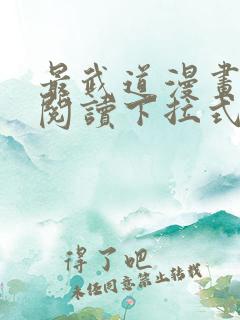 最武道漫畫
閱讀下拉式
得了吧
未经同意禁止转载